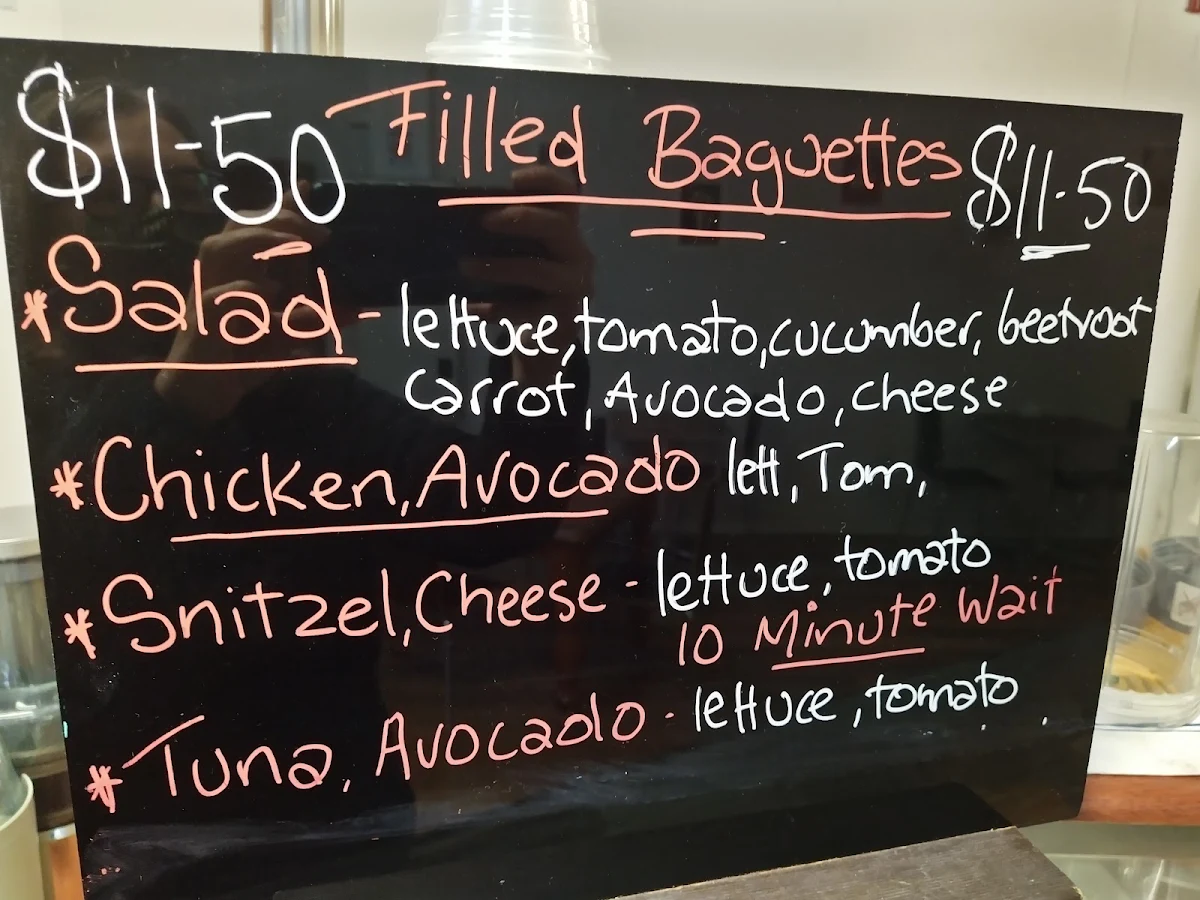 $11-50 Filled Baguettes $11-50
*Salad - lettuce, tomato, cucumber, beetroot
carrot, Avocado, cheese
*Chicken, Avocado lett, Tom,
*Snitzel, Cheese - lettuce, tomato
10 Minute Wait
*Tuna, Avocado - lettuce, tomato